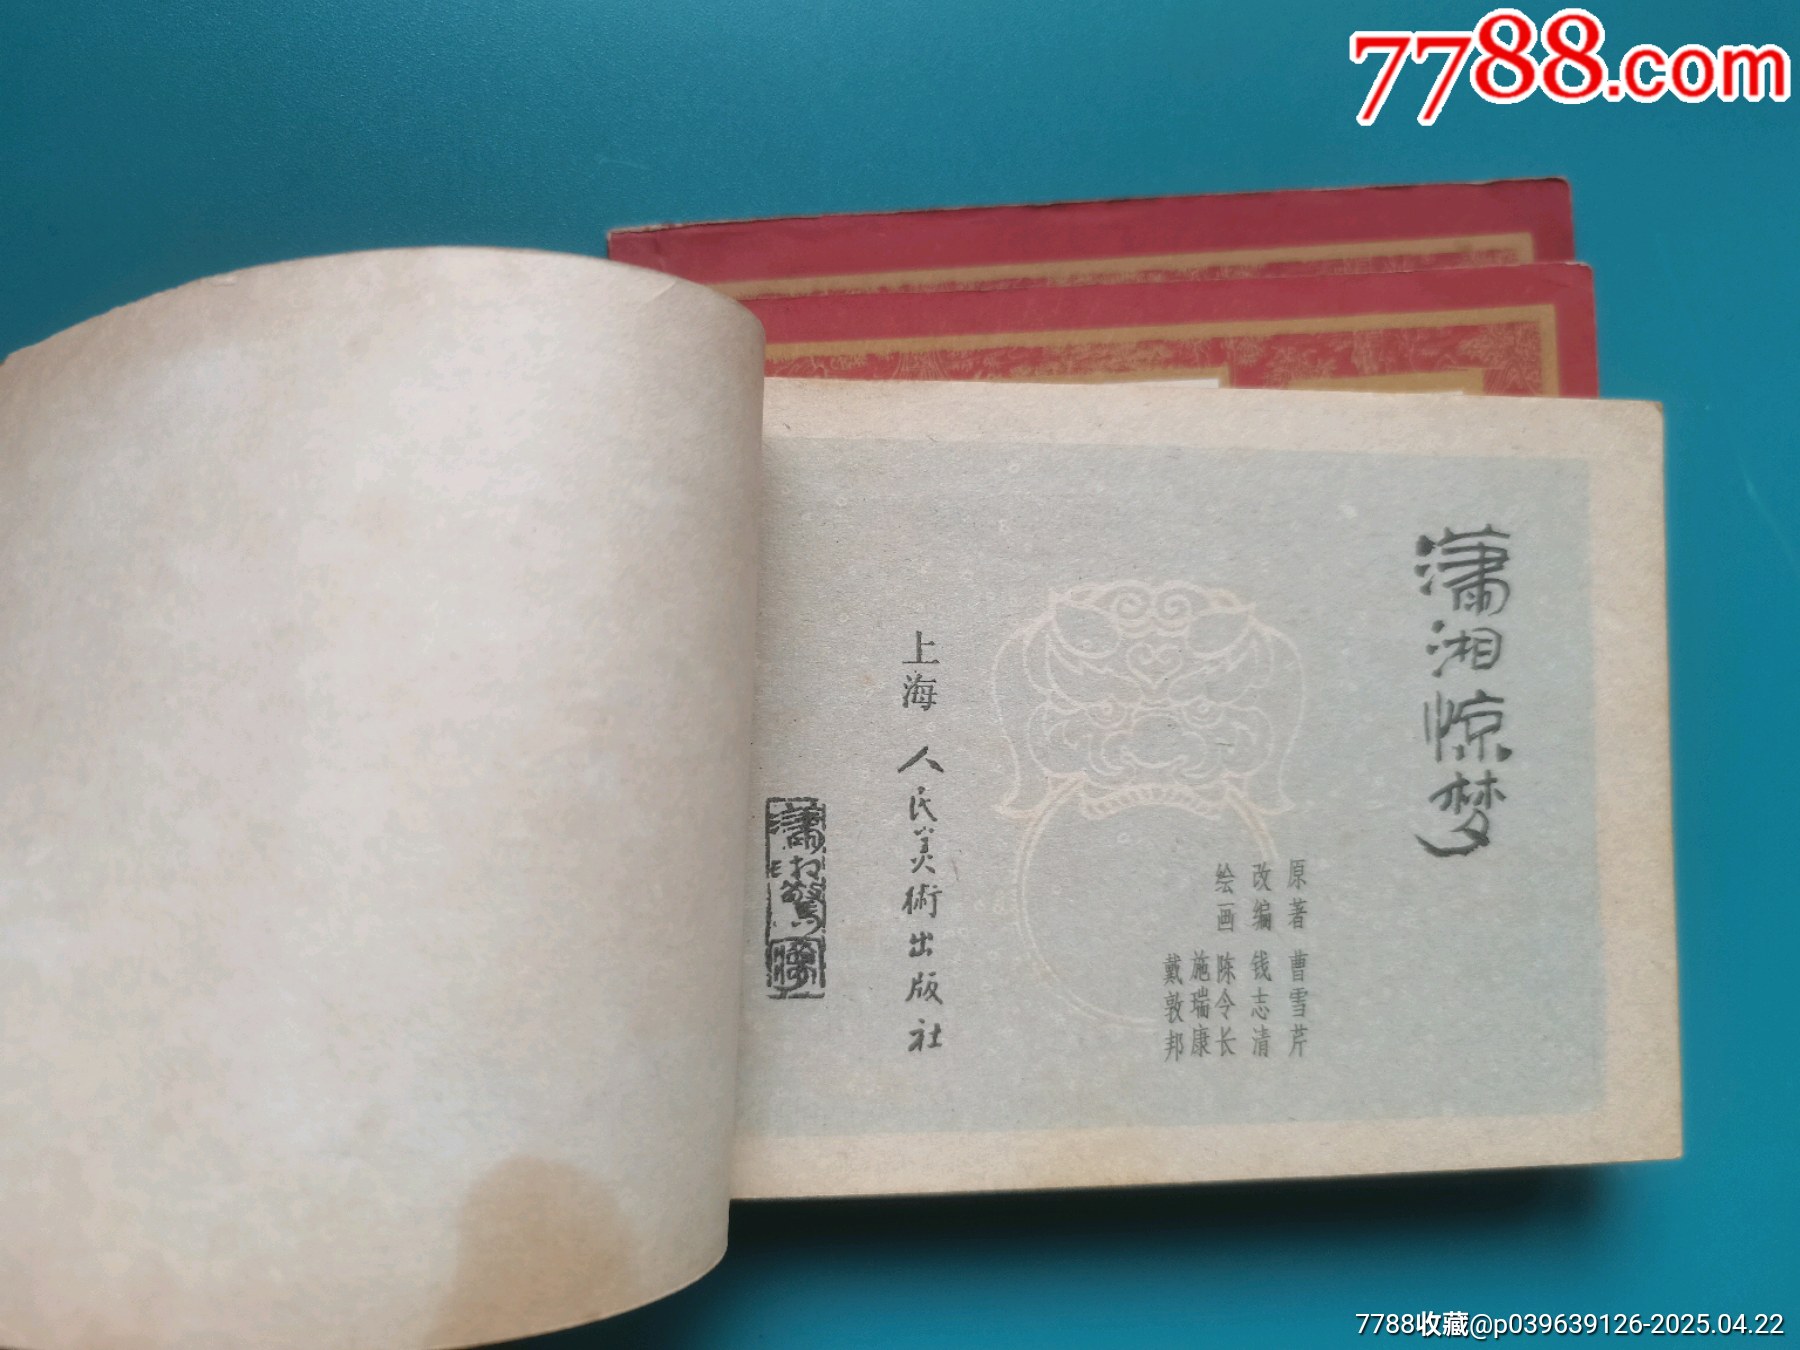 7788.com
潇湘惊梦
原著 曹雪芹
改编 钱志清
绘画 陈令长
施瑞康
戴敦邦
上海 人民美術出版社
7788收藏@p039639126-2025.04.22